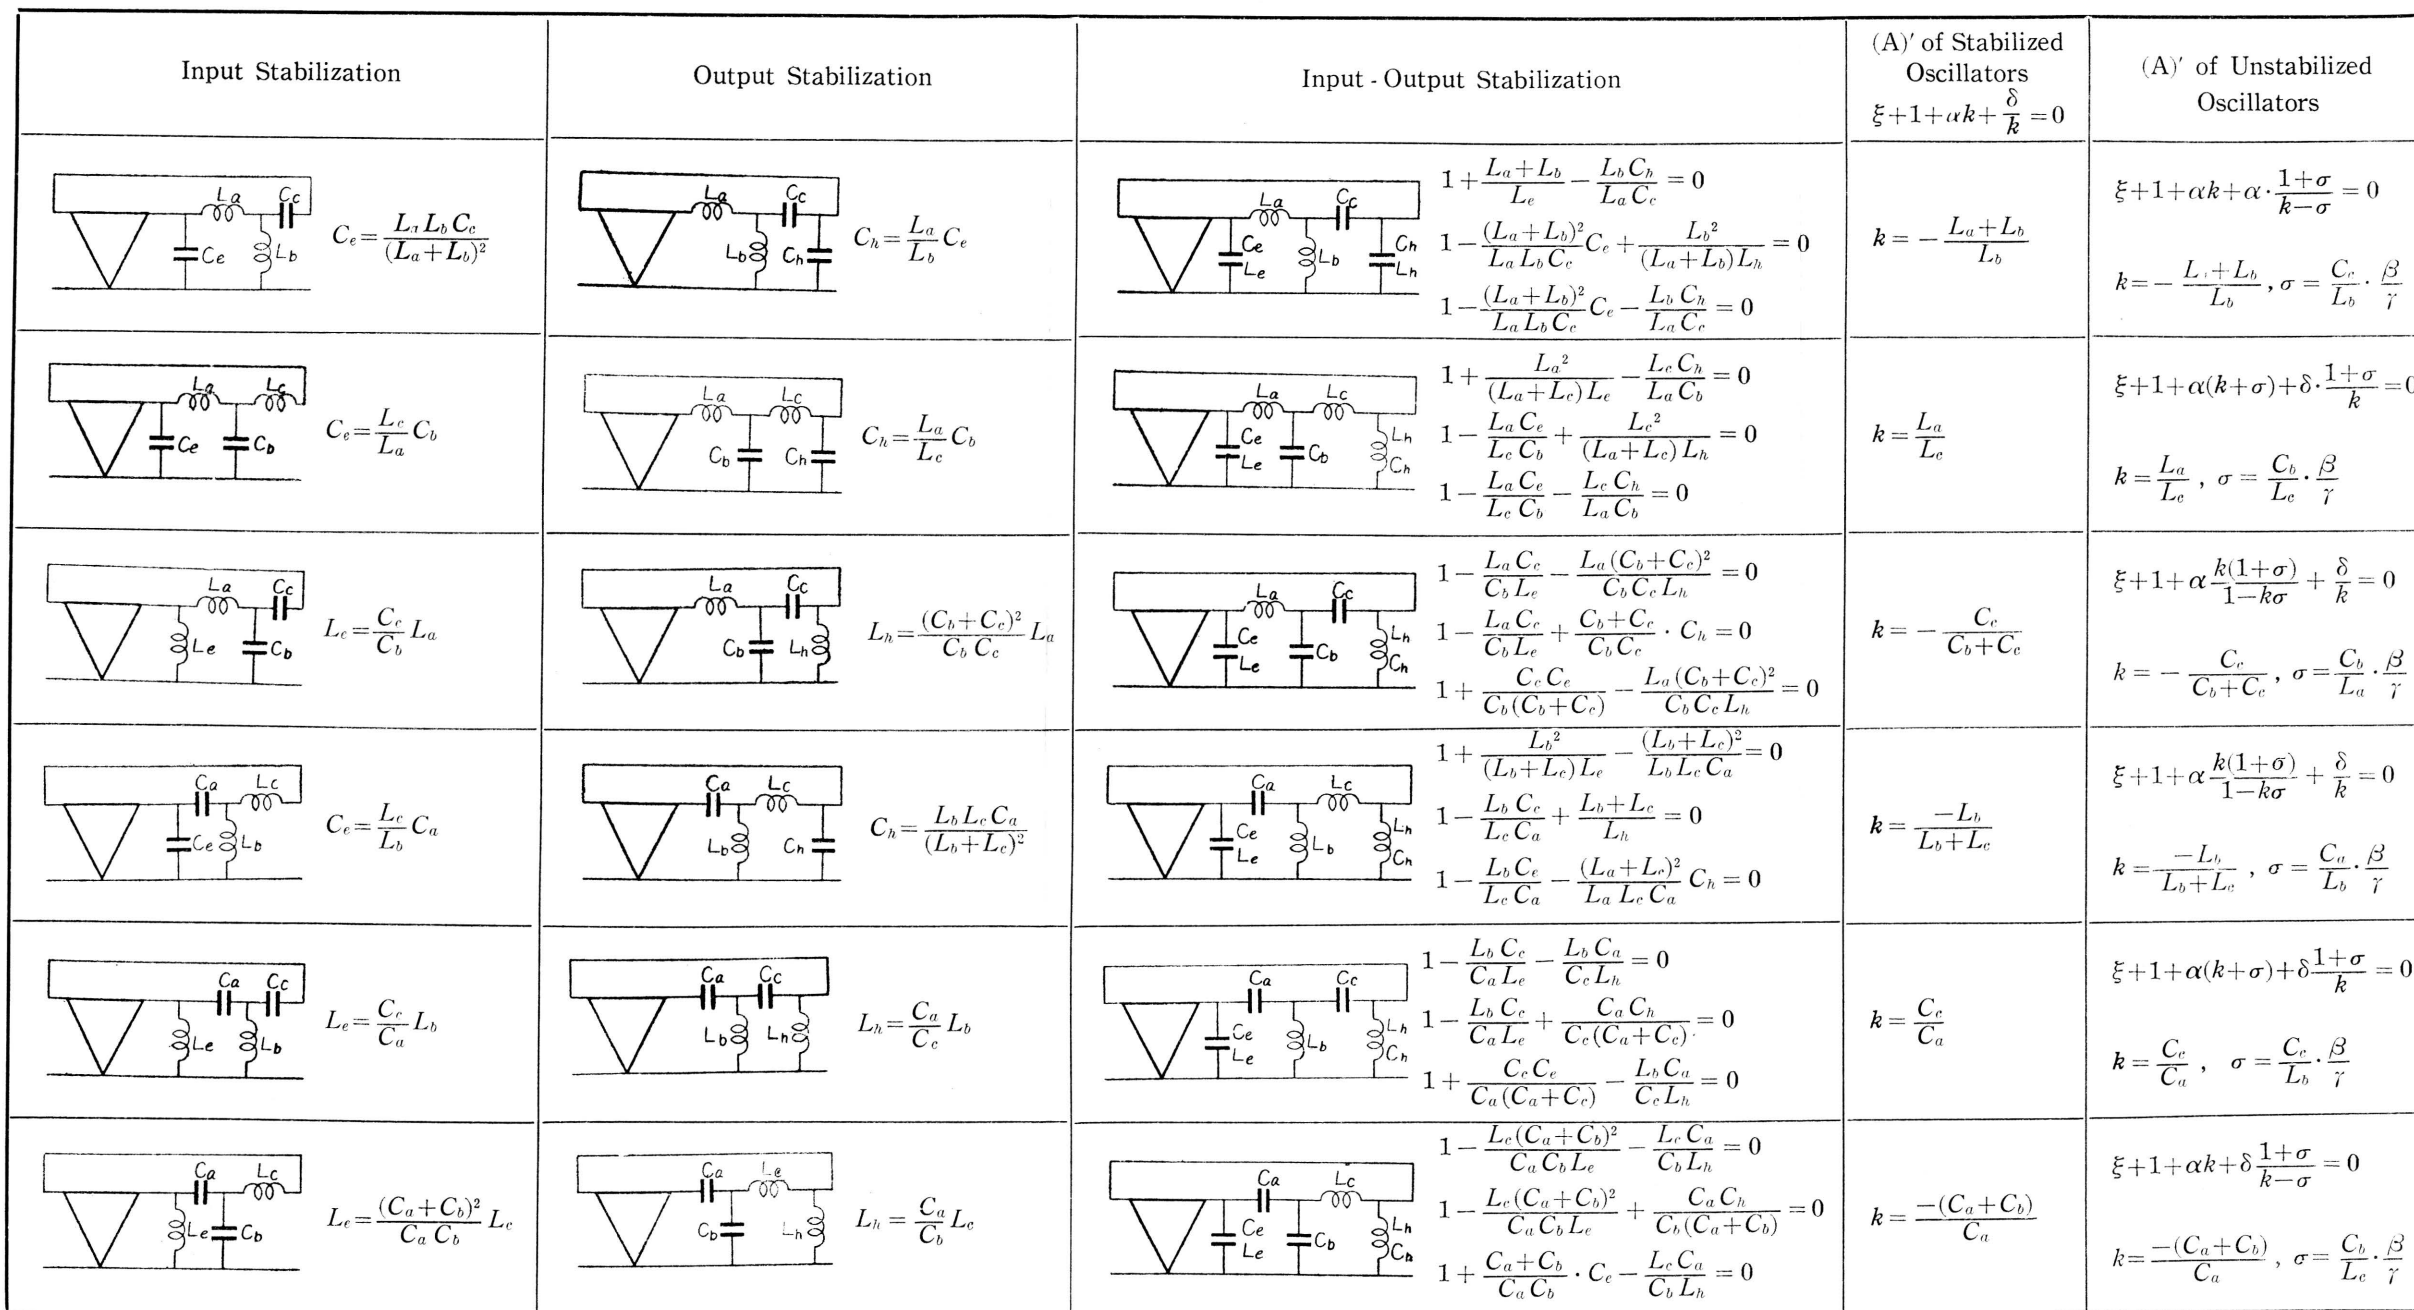 Input Stabilization
Output Stabilization
Input - Output Stabilization
(A)′ of Stabilized
Oscillators
ξ+1+αk+δ/k=0
(A)′ of Unstabilized
Oscillators
La Cc
Ce Lb
C_e = L_a L_b C_c/(L_a+L_b)²
La Cc
Lb Ch
C_h = L_a/L_b C_e
La Cc
Ce Le Lb Ch Lh
1+(L_a+L_b)/L_e − L_b C_h/(L_a C_c) = 0
1−(L_a+L_b)²/(L_a L_b C_c) C_e + L_b²/((L_a+L_b)L_h) = 0
1−(L_a+L_b)²/(L_a L_b C_c) C_e − L_b C_h/(L_a C_c) = 0
k = −(L_a+L_b)/L_b
ξ+1+αk+α·(1+σ)/(k−σ) = 0
k = −(L +L_b)/L_b, σ = C_c/L_b · β/γ
La Lc
Ce Cb
C_e = L_c/L_a C_b
La Lc
Cb Ch
C_h = L_a/L_c C_b
La Lc
Ce Le Cb Lh Ch
1+L_a²/((L_a+L_c)L_e) − L_c C_h/(L_a C_b) = 0
1−L_a C_e/(L_c C_b) + L_c²/((L_a+L_c)L_h) = 0
1−L_a C_e/(L_c C_b) − L_c C_h/(L_a C_b) = 0
k = L_a/L_c
ξ+1+α(k+σ)+δ·(1+σ)/k = 0
k = L_a/L_c, σ = C_b/L_c · β/γ
La Cc
Le Cb
L_e = C_c/C_b L_a
La Cc
Cb Lh
L_h = (C_b+C_c)²/(C_b C_c) L_a
La Cc
Ce Le Cb Lh Ch
1−L_a C_c/(C_b L_e) − L_a(C_b+C_c)²/(C_b C_c L_h) = 0
1−L_a C_c/(C_b L_e) + (C_b+C_c)/(C_b C_c) · C_h = 0
1+C_c C_e/(C_b(C_b+C_c)) − L_a(C_b+C_c)²/(C_b C_c L_h) = 0
k = −C_c/(C_b+C_c)
ξ+1+α k(1+σ)/(1−kσ) + δ/k = 0
k = −C_c/(C_b+C_c), σ = C_b/L_a · β/γ
Ca Lc
Ce Lb
C_e = L_c/L_b C_a
Ca Lc
Lb Ch
C_h = L_b L_c C_a/(L_b+L_c)²
Ca Lc
Ce Le Lb Lh Ch
1+L_b²/((L_b+L_c)L_e) − (L_b+L_c)²/(L_b L_c C_a) = 0
1−L_b C_c/(L_c C_a) + (L_b+L_c)/L_h = 0
1−L_b C_e/(L_c C_a) − (L_a+L_c)²/(L_a L_c C_a) C_h = 0
k = −L_b/(L_b+L_c)
ξ+1+α k(1+σ)/(1−kσ) + δ/k = 0
k = −L_b/(L_b+L_c), σ = C_a/L_b · β/γ
Ca Cc
Le Lb
L_e = C_c/C_a L_b
Ca Cc
Lb Lh
L_h = C_a/C_c L_b
Ca Cc
Ce Le Lb Lh Ch
1−L_b C_c/(C_a L_e) − L_b C_a/(C_c L_h) = 0
1−L_b C_c/(C_a L_e) + C_a C_h/(C_c(C_a+C_c)) = 0
1+C_c C_e/(C_a(C_a+C_c)) − L_b C_a/(C_c L_h) = 0
k = C_c/C_a
ξ+1+α(k+σ)+δ (1+σ)/k = 0
k = C_c/C_a, σ = C_c/L_b · β/γ
Ca Lc
Le Cb
L_e = (C_a+C_b)²/(C_a C_b) L_c
Ca Le
Cb Lh
L_h = C_a/C_b L_c
Ca Lc
Ce Le Cb Lh Ch
1−L_c(C_a+C_b)²/(C_a C_b L_e) − L_c C_a/(C_b L_h) = 0
1−L_c(C_a+C_b)²/(C_a C_b L_e) + C_a C_h/(C_b(C_a+C_b)) = 0
1+(C_a+C_b)/(C_a C_b) · C_e − L_c C_a/(C_b L_h) = 0
k = −(C_a+C_b)/C_a
ξ+1+αk+δ (1+σ)/(k−σ) = 0
k = −(C_a+C_b)/C_a, σ = C_b/L_c · β/γ